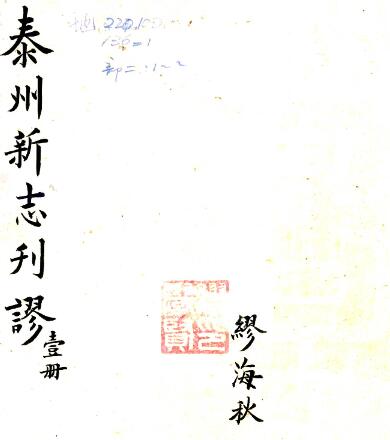 泰州新志刊謬
壹册
繆海秋
地 220.10
130=1
部二·1～2